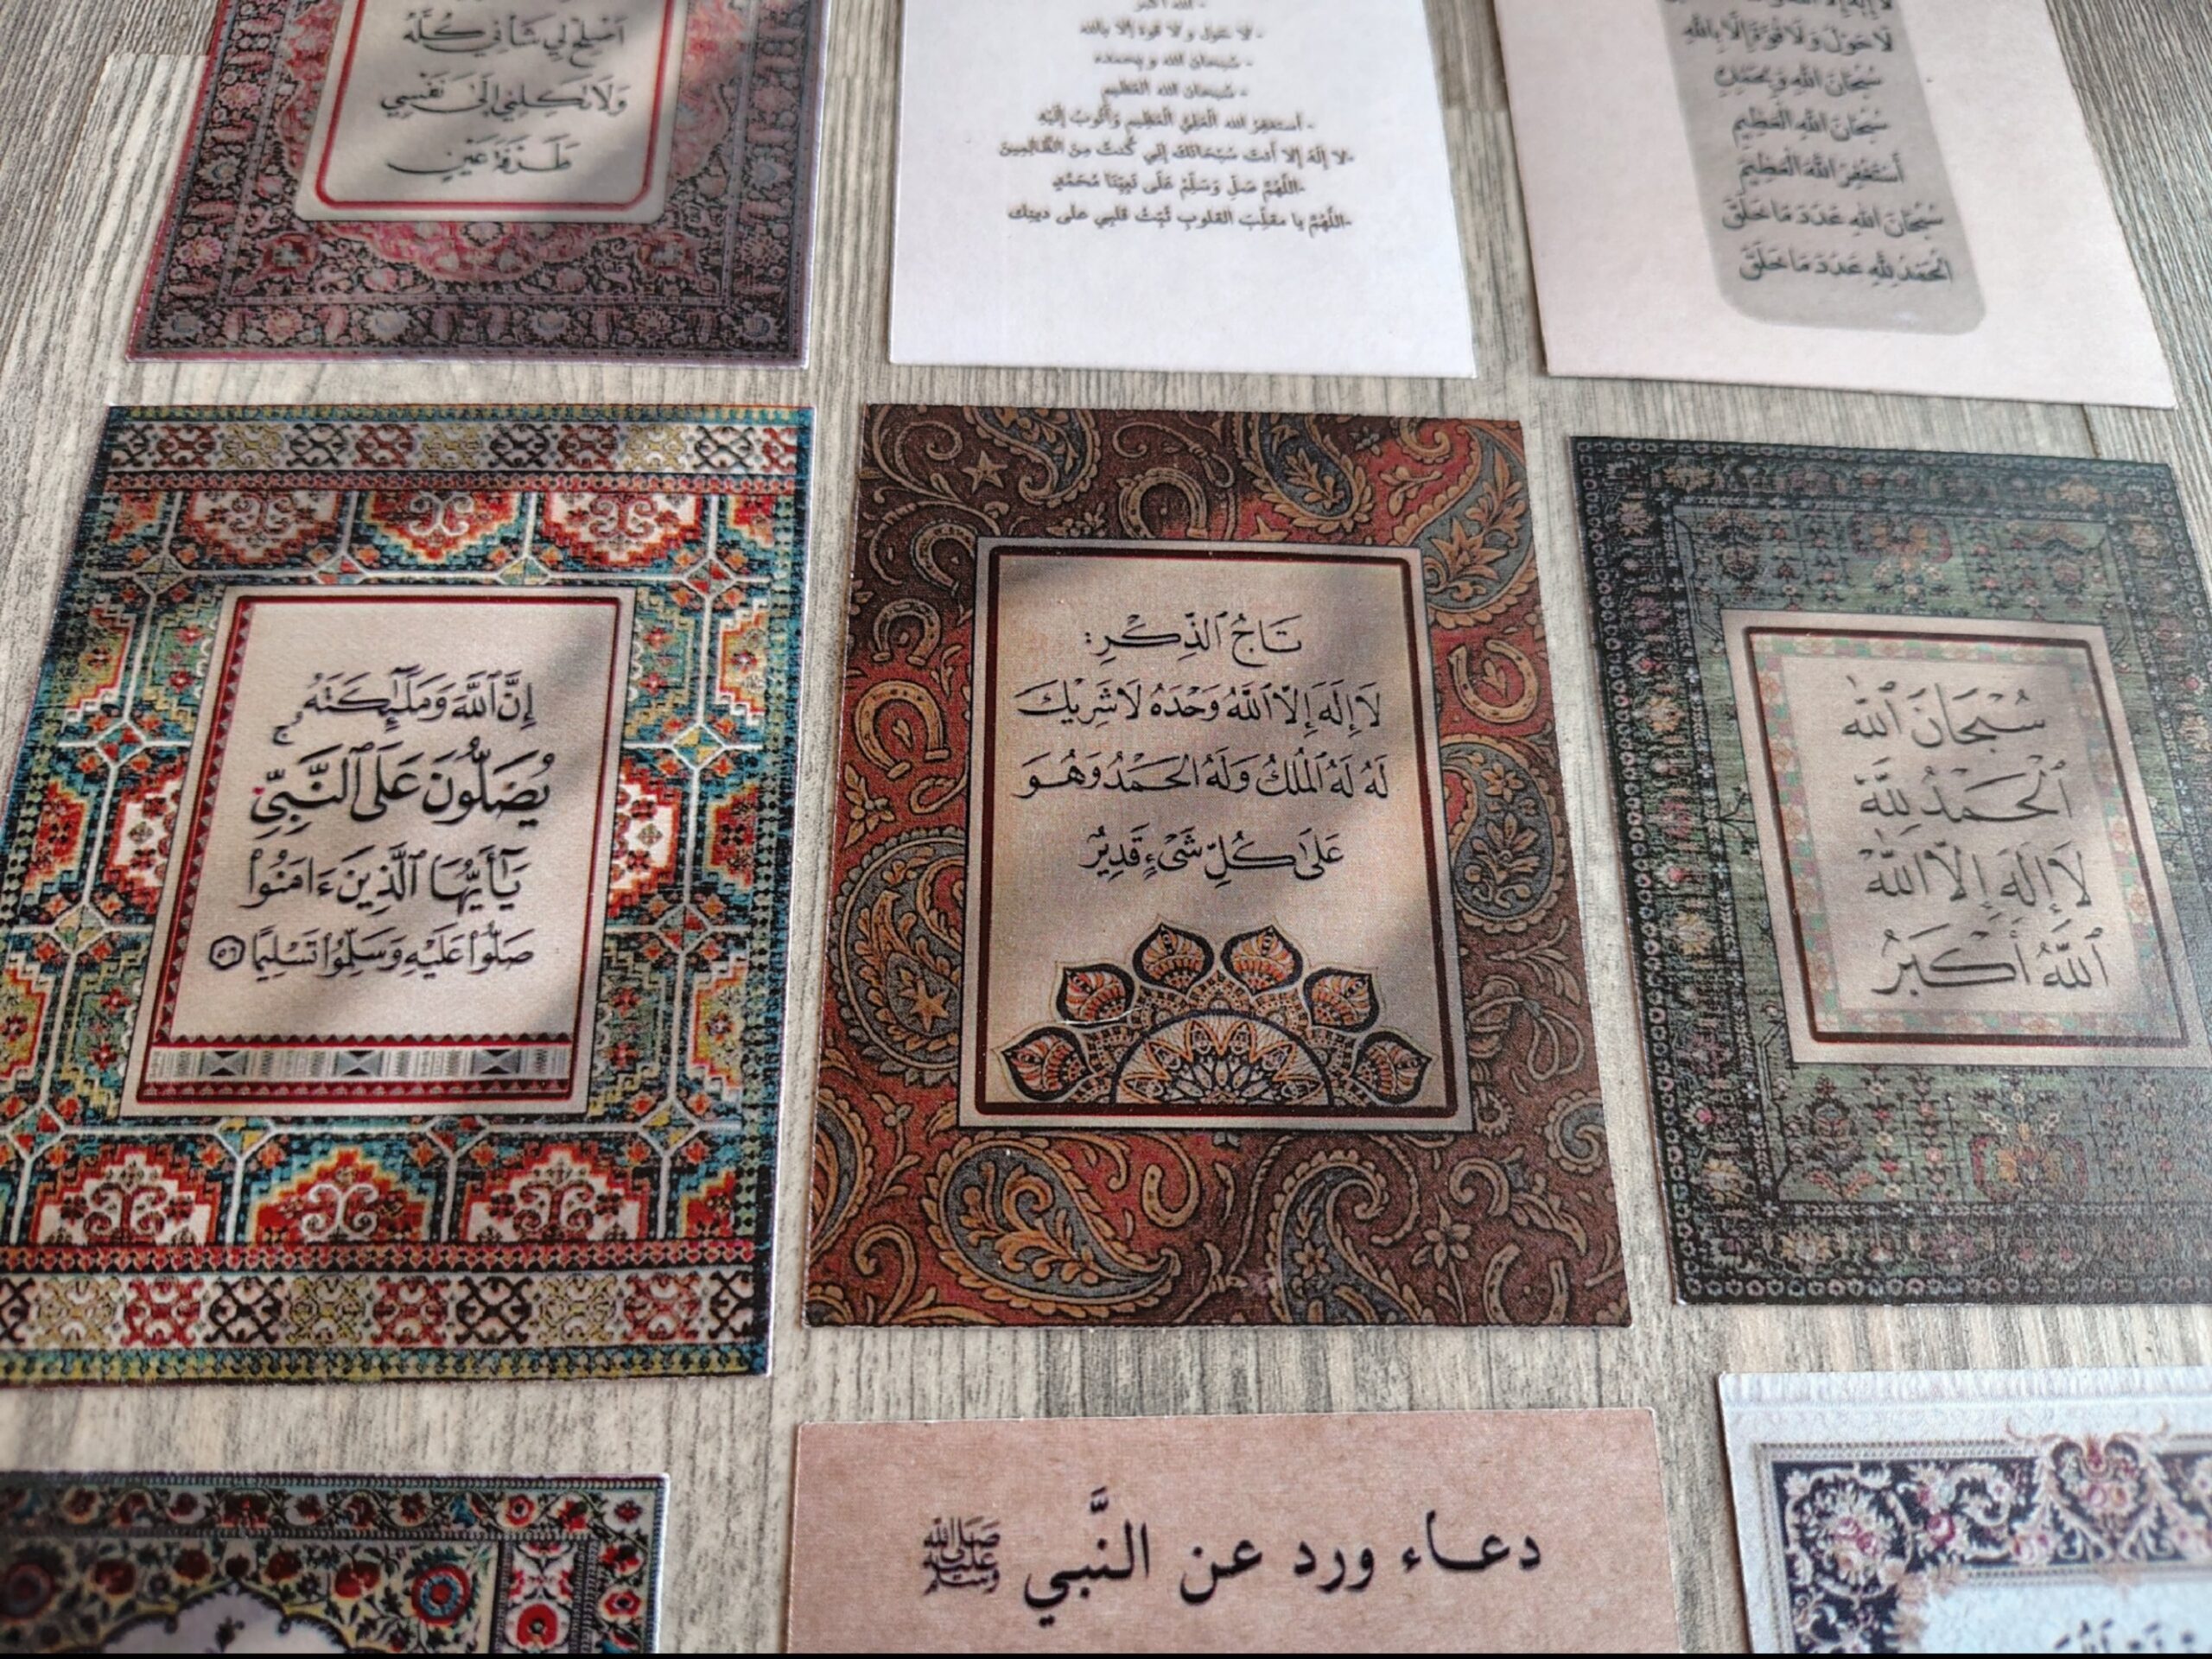 أَصْلِحْ لِي شَأْنِي كُلَّهُ
وَلَا تَكِلْنِي إِلَىٰ نَفْسِي
طَرْفَةَ عَيْنٍ
- الله أكبر
- لا حول و لا قوة إلا بالله
- سُبحان الله و بِحمده
- سُبحان الله العَظيم
- أستغفِرُ الله الْعَلِيَّ الْعَظِيمِ وَأَتُوبُ إِلَيْهِ
-لا إِلَهَ إِلا أَنتَ سُبْحَانَكَ إِنِّي كُنتُ مِنَ الظَّالِمِينَ
-اللَّهُمَّ صَلِّ وَسَلِّمْ عَلَى نَبِيِّنَا مُحَمَّدٍ
-اللَّهُمَّ يا مقلِّبَ القلوبِ ثَبِّتْ قلبِي على دينِك
لَا حَوْلَ وَلَا قُوَّةَ إِلَّا بِاللَّهِ
سُبْحَانَ اللَّهِ وَبِحَمْدِهِ
سُبْحَانَ اللَّهِ الْعَظِيمِ
أَسْتَغْفِرُ اللَّهَ الْعَظِيمَ
سُبْحَانَ اللَّهِ عَدَدَ مَا خَلَقَ
الْحَمْدُ لِلَّهِ عَدَدَ مَا خَلَقَ
إِنَّ ٱللَّهَ وَمَلَٰٓئِكَتَهُۥ
يُصَلُّونَ عَلَى ٱلنَّبِىِّ ۚ
يَٰٓأَيُّهَا ٱلَّذِينَ ءَامَنُوا۟
صَلُّوا۟ عَلَيْهِ وَسَلِّمُوا۟ تَسْلِيمًا ٥٦
تَاجُ ٱلذِّكْرِ:
لَا إِلَهَ إِلَّا ٱللَّهُ وَحْدَهُ لَا شَرِيكَ
لَهُ لَهُ ٱلْمُلْكُ وَلَهُ الْحَمْدُ وَهُوَ
عَلَىٰ كُلِّ شَىْءٍ قَدِيرٌ
سُبْحَانَ ٱللَّه
ٱلْحَمْدُ لِلَّه
لَا إِلَهَ إِلَّا ٱللَّه
ٱللَّهُ أَكْبَرُ
دعاء ورد عن النَّبي ﷺ